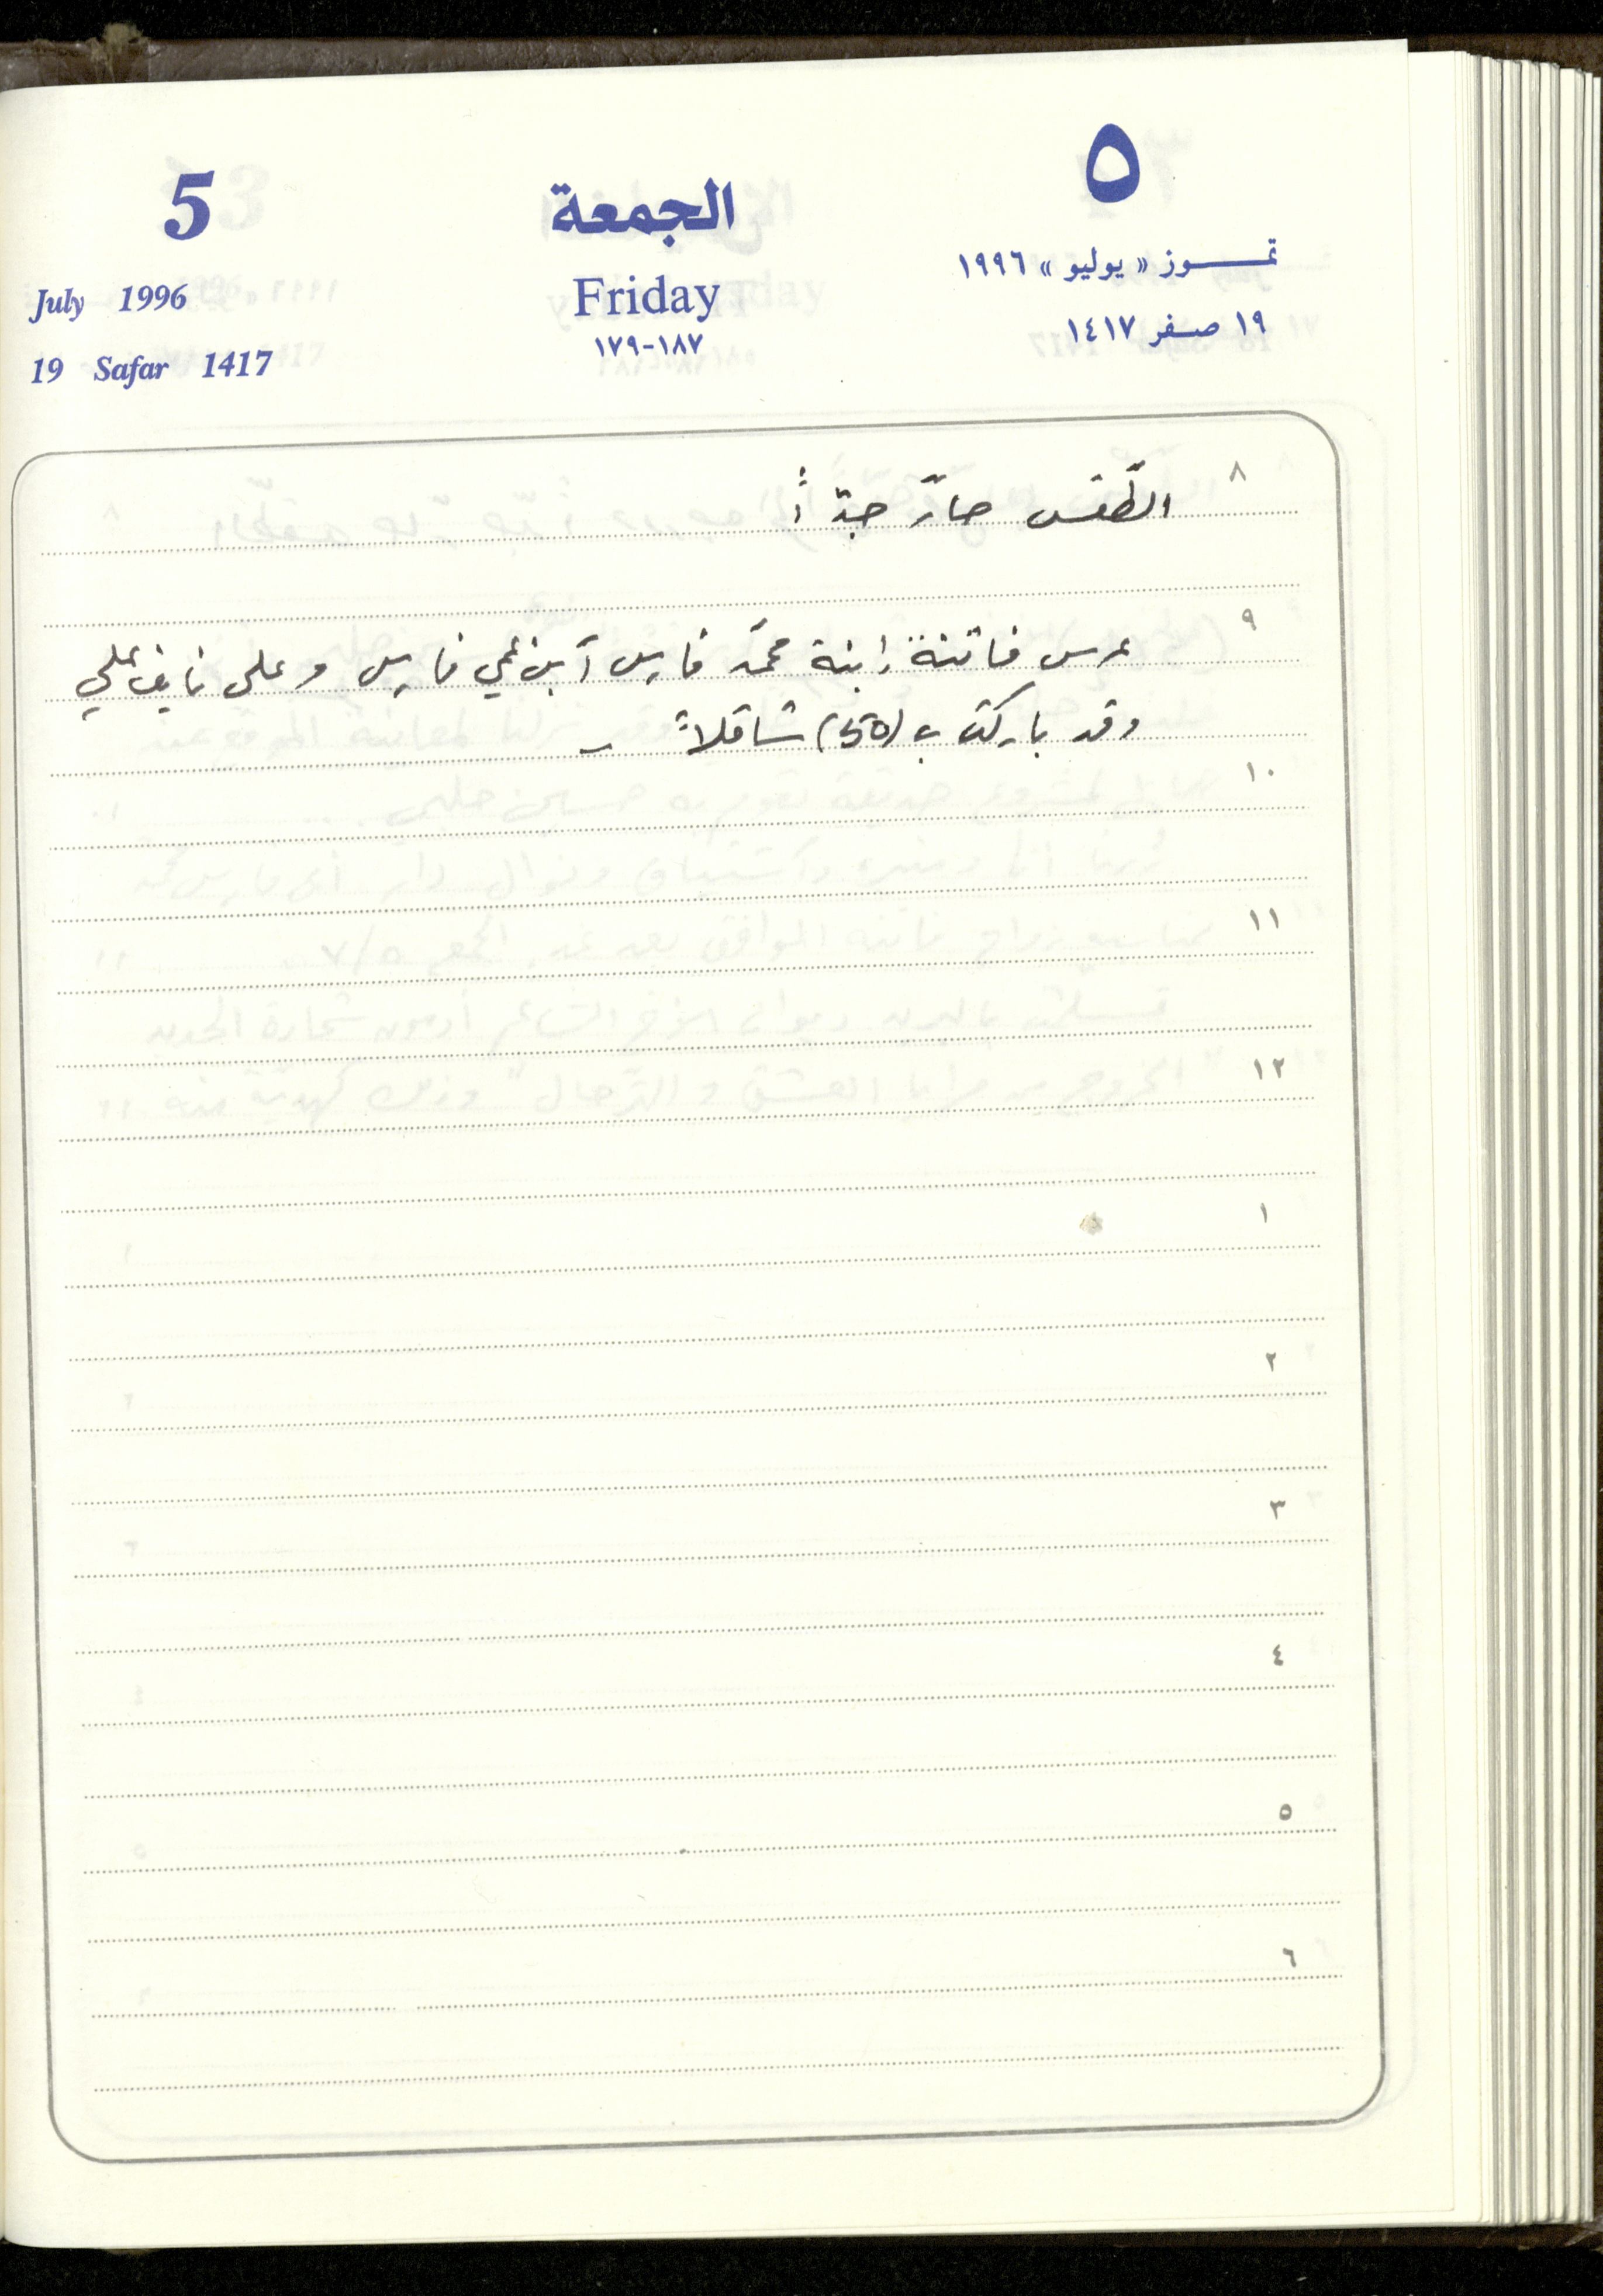 5 الجمعة ٥
July 1996 Friday تمـــوز « يوليو » ١٩٩٦
19 Safar 1417 ١٨٧-١٧٩ ١٩ صـفر ١٤١٧
٨
الطّقس حارّ جدّاً
٩
عرس فاتنة إبنة محمّد فارس آبن عمي فارس وعلى نايف علي
وقد باركت ب (50) شاقلاً
١٠
١١
١٢
١
٢
٣
٤
٥
٦